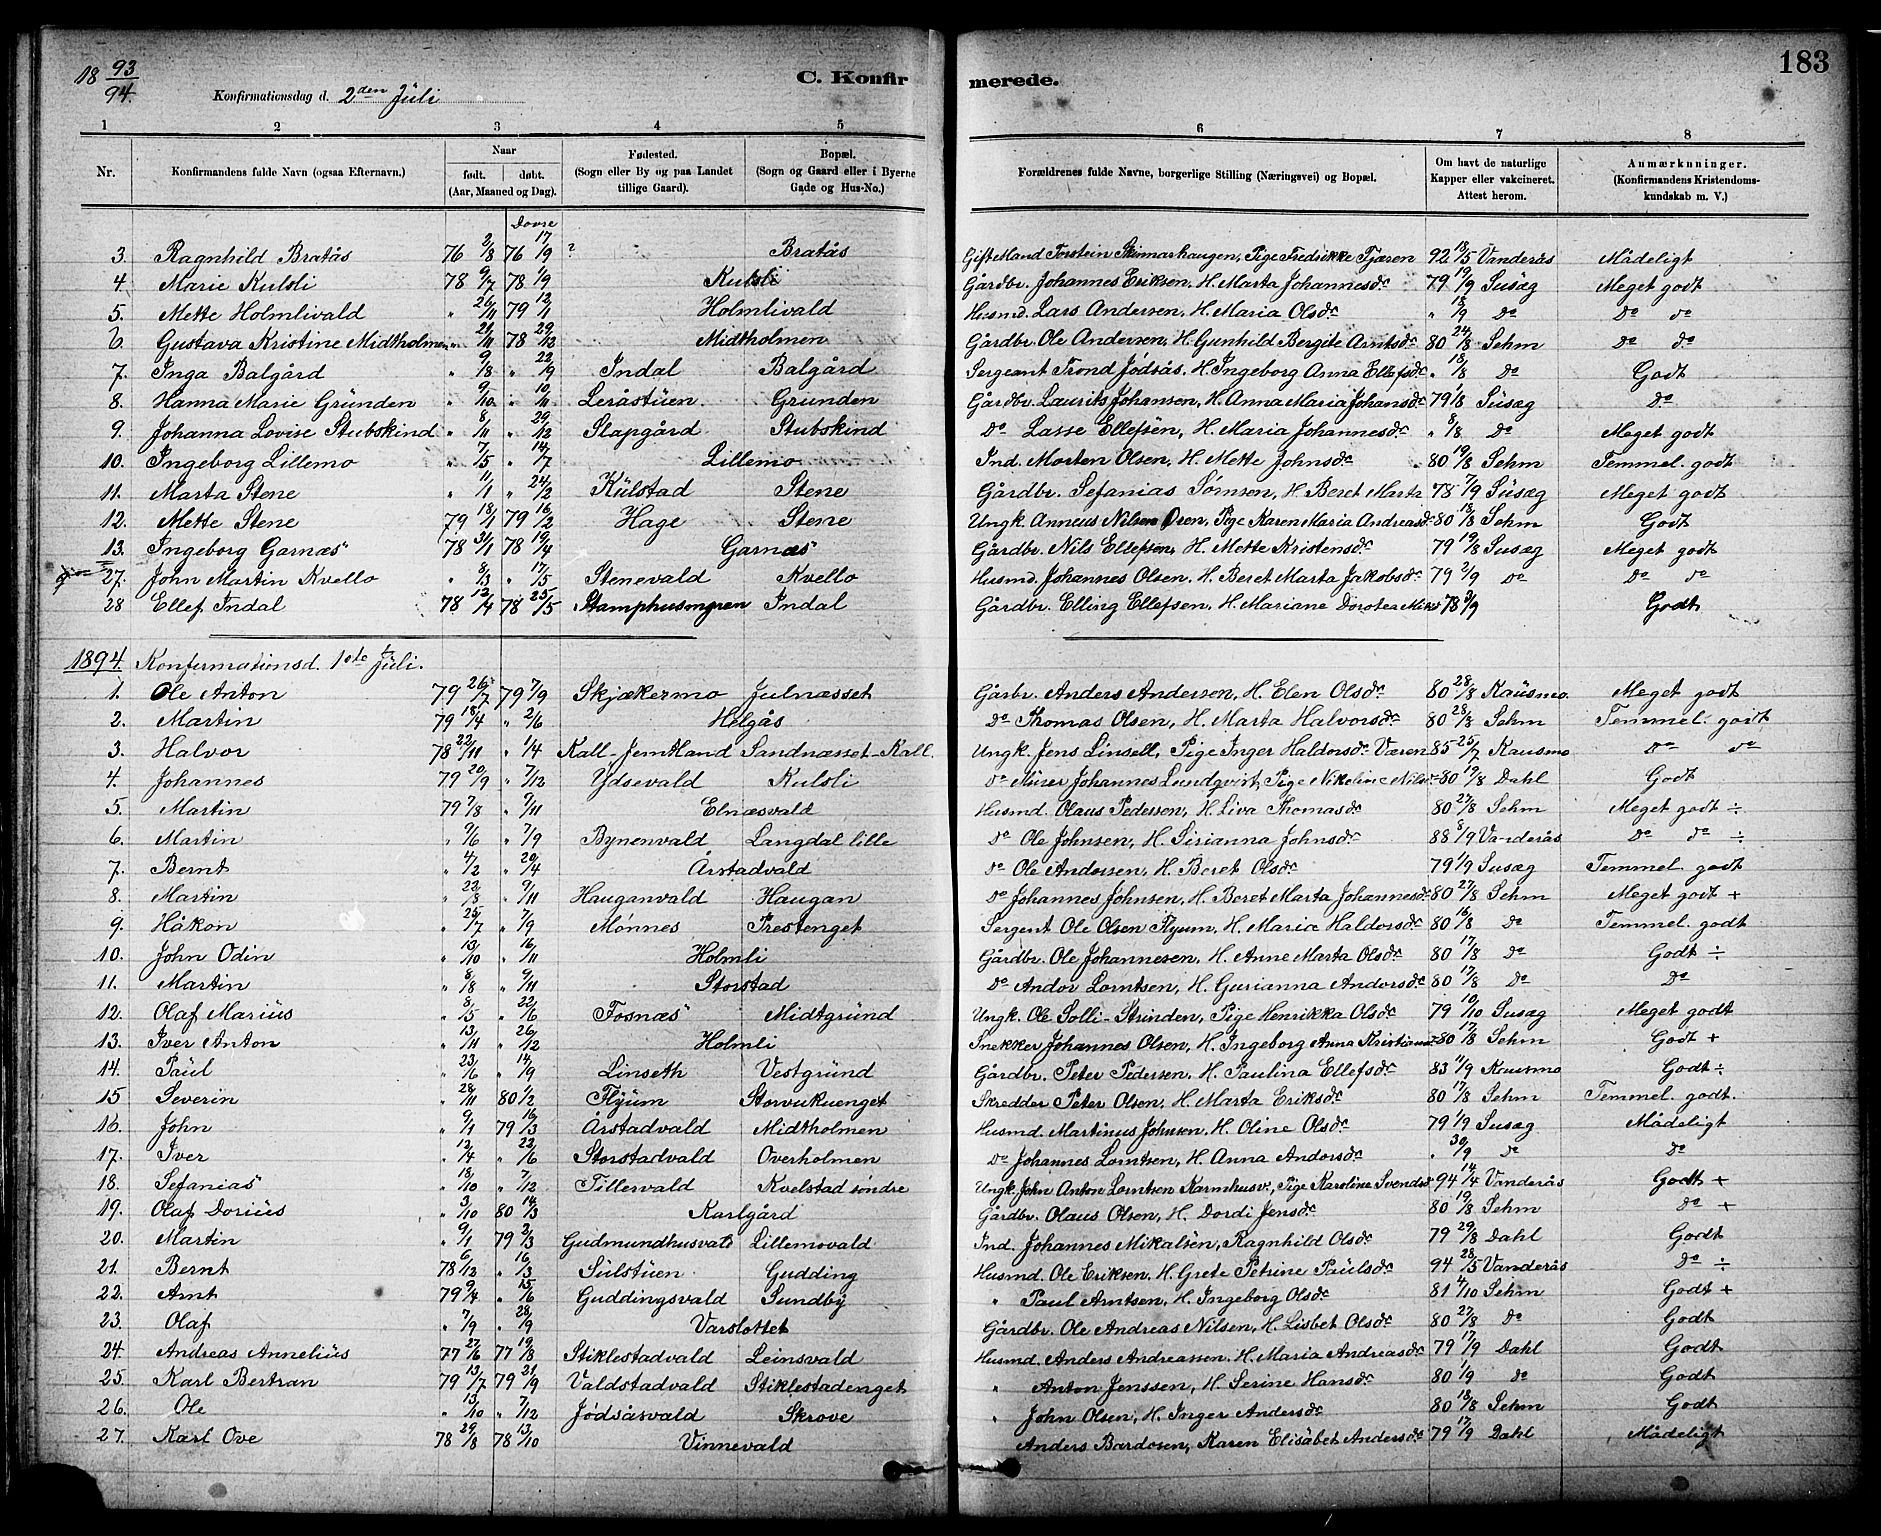 18 93/94.
C. Konfirmerede.
183
Konfirmationsdag d. 2den Juli
1 2 3 4 5 6 7 8
Nr. Konfirmandens fulde Navn (ogsaa Efternavn). Naar født. døbt. (Aar, Maaned og Dag). Fødested. (Sogn eller By og paa Landet tillige Gaard). Bopæl. (Sogn og Gaard eller i Byerne Gade og Hus-No.) Forældrenes fulde Navne, borgerlige Stilling (Næringsvei) og Bopæl. Om havt de naturlige Kapper eller vakcineret. Attest herom. Anmærkninger. (Konfirmandens Kristendomskundskab m. V.)
Dovre
3. Ragnhild Bratås 76 2/8 76 17/9 ? Bratås Gift Mand Torstein Skinnarhaugen, Pige Fredrikke Tjæren 92 18/5 Vanderås Mådeligt
4. Marie Kulsli 78 9/7 78 1/9 Kulsli Gårdbr. Johannes Eriksen, H. Marta Johannesdr 79 19/9 Susæg Meget godt
5. Mette Holmlivald " 26/11 79 12/1 Holmlivald Husmd. Lars Andersen, H. Maria Olsdr " 18/9 Do Do do
6. Gustava Kristine Midtholmen " 21/11 78 29/12 Midtholmen Gårdbr. Ole Andersen, H. Gunhild Bergite Arntsdr 80 24/8 Sehm Do do
7. Inga Balgård " 9/8 " 22/9 Indal Balgård Sergeant Trond Jødsås, H. Ingeborg Anna Ellefsdr " 18/8 Do Godt
8. Hanna Marie Grunden " 9/10 " 10/11 Leråstuen Grunden Gårdbr. Laurits Johansen, H. Anna Maria Johansdr 79 1/8 Susæg Do
9. Johanna Lovise Stubskind " 8/11 " 29/12 Slapgård Stubskind Do Lasse Ellefsen, H. Maria Johannesdr " 8/8 Do Meget godt
10. Ingeborg Lillemo " 7/5 " 14/7 Lillemo Ind. Morten Olsen, H. Mette Johnsdr 80 19/8 Sehm Temmel. godt
11. Marta Stene " 11/1 " 24/2 Kulstad Stene Gårdbr. Sefanias Tømsen, H. Beret Marta 78 7/9 Susæg Meget godt
12. Mette Stene 79 18/1 79 16/2 Hage Stene Ungk. Anneus Nilsen Osen, Pige Karen Maria Andreasdr 80 18/8 Sehm Godt
13. Ingeborg Garnæs 78 31/1 78 19/4 Garnæs Gårdbr. Nils Ellefsen, H. Mette Kristensdr 79 19/8 Susæg Meget godt
27. John Martin Kvello " 8/3 " 17/5 Stenevald Kvello Husmd. Johannes Olsen, H. Beret Marta Jakobsdr 79 2/9 Do Do do
28 Ellef Indal 78 12/4 78 25/5 Stamphusmyren Indal Gårdbr. Elling Ellefsen, H. Mariane Dorotea 78 3/9 Godt
1894. Konfirmationsd. 1ste Juli.
1. Ole Anton 79 26/7 79 7/9 Skjækermo Julnæsset Gårbr. Anders Andersen, H. Elen Olsdr 80 28/8 Kausmo Meget godt
2. Martin 79 18/4 " 2/6 Helgås Do Thomas Olsen, H. Marta Halvorsdr 80 28/8 Sehm Temmel. godt
3. Halvor 78 22/11 " 1/4 Kall-Jemtland Sandnæsset-Kall. Ungk. Jens Linsell, Pige Inger Haldorsdr Væren 85 25/7 Kausmo Do do
4. Johannes 79 20/9 " 7/12 Ydsevald Kulsli Do Miner Johannes Lundqvist, Pige Nikoline Nilsdr 80 19/8 Dahl Godt
5. Martin 79 7/8 " 9/11 Elnæsvald Husmd. Olaus Pedersen, H. Liva Thomasdr 80 27/8 Sehm Meget godt ÷
6. Martin " 9/6 " 7/9 Bynenvald Langdal lille Do Ole Johnsen, H. Sirianna Johnsdr 88 8/9 Vanderås Do do ÷
7. Bernt " 4/2 " 20/4 Årstadvald Do Ole Andersen, H. Beret Olsdr 79 1/9 Susæg Temmel. godt
8. Martin " 22/8 " 9/11 Hauganvald Haugan Do Johannes Johnsen, H. Beret Marta Johannesdr 80 27/8 Sehm Meget godt +
9. Håkon " 25/7 " 7/9 Mønnes Prestenget Sergent Ole Olsen Flyum, H. Maria Haldorsdr 80 16/8 Do Temmel. godt
10. John Odin " 13/10 " 16/11 Holmli Gårdbr. Ole Johannesen, H. Anne Marta Olsdr 80 17/8 Do Godt ÷
11. Martin " 8/8 " 9/11 Storstad Do Andor Lorntsen, H. Gurianna Andorsdr 80 17/8 Do Do
12. Olaf Marius " 8/5 " 22/6 Fosnæs Midtgrund Ungk. Ole Solli-Strinden, Pige Henrikka Olsdr 79 10/10 Susæg Meget godt
13. Iver Anton " 13/11 " 26/12 Holmli Snekker Johannes Olsen, H. Ingeborg Anna Kristiansdr 80 17/8 Sehm Godt +
14. Paul " 23/6 " 14/9 Linseth Vestgrund Gårdbr. Peter Pedersen, H. Paulina Ellefsdr 83 11/9 Kausmo Godt ÷
15 Severin " 28/11 80 1/2 Flyum Storvukuenget Skredder Peter Olsen, H. Marta Eriksdr 80 17/8 Sehm Temmel. godt.
16. John " 9/1 79 16/3 Årstadvald Midtholmen Husmd. Martinus Johnsen, H. Oline Olsdr 79 1/9 Susæg Mådeligt
17. Iver " 12/4 " 22/6 Storstadvald Overholmen Do Johannes Lorntsen, H. Anna Andorsdr " 30/9 do Do
18. Sefanias " 18/10 " 7/12 Tillervald Kvelstad søndre Ungk. John Anton Lorntsen Karmhusv., Pige Karoline Svendsdr 94 14/4 Vanderås Godt +
19. Olaf Dorius " 3/10 80 14/3 Karlgård Gårdbr. Olaus Olsen, H. Dordi Jensdr 80 19/8 Sehm Do +
20. Martin " 9/1 79 2/3 Gudmundhusvald Lillemovald Ind. Johannes Mikalsen, Ragnhild Olsdr 79 29/8 Dahl Godt
21. Bernt 78 6/12 " 16/3 Sulstuen Gudding Husmd. Ole Eriksen, H. Grete Petrine Paulsdr 94 28/5 Vanderås Do ÷
22. Arnt 79 9/4 " 15/6 Guddingsvald Sundby " Paul Arntsen, H. Ingeborg Olsdr 81 4/10 Sehm Godt +
23. Olaf " 7/9 " 28/9 Varslottet Gårdbr. Ole Andreas Nilsen, H. Lisbet Olsdr 80 27/8 Do Godt
24. Andreas Annelius 77 27/6 77 19/8 Stiklestadvald Leinsvald Husmd. Anders Andreassen. H. Maria Andreasdr 79 17/9 Dahl Godt
25. Karl Bertran 79 13/7 79 21/9 Valdstadvald Stiklestadenget " Anton Jenssen, H. Serine Hansdr 80 1/9 Do Godt
26. Ole " 13/10 " 7/12 Jødsåsvald Skrove " John Olsen, H. Inger Andersdr 80 18/8 Sehm Godt
27. Karl Ove 78 29/8 78 13/10 Vinnevald Anders Bardosen, Karen Elisabet Andersdr 79 17/9 Dahl Mådeligt